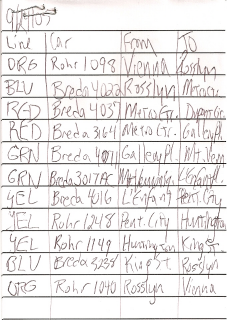 9/24/05
Line Car From To
ORG Rohr 1098 Vienna Rosslyn
BLU Breda Rosslyn MetroCtr
RED Breda 4037 MetroCtr. Dupont Cir.
RED Breda MetroCtr. Gallery Pl.
GRN Breda Gallery Pl. Mt. Vern
GRN Breda L'Enfant
YEL Breda 4016 L'Enfant Pent. City
YEL Rohr 1248 Pent. City Huntington
YEL Rohr 1149 Huntington King St
BLU Breda 3238 King St. Rosslyn
ORG Rohr 1040 Rosslyn Vienna